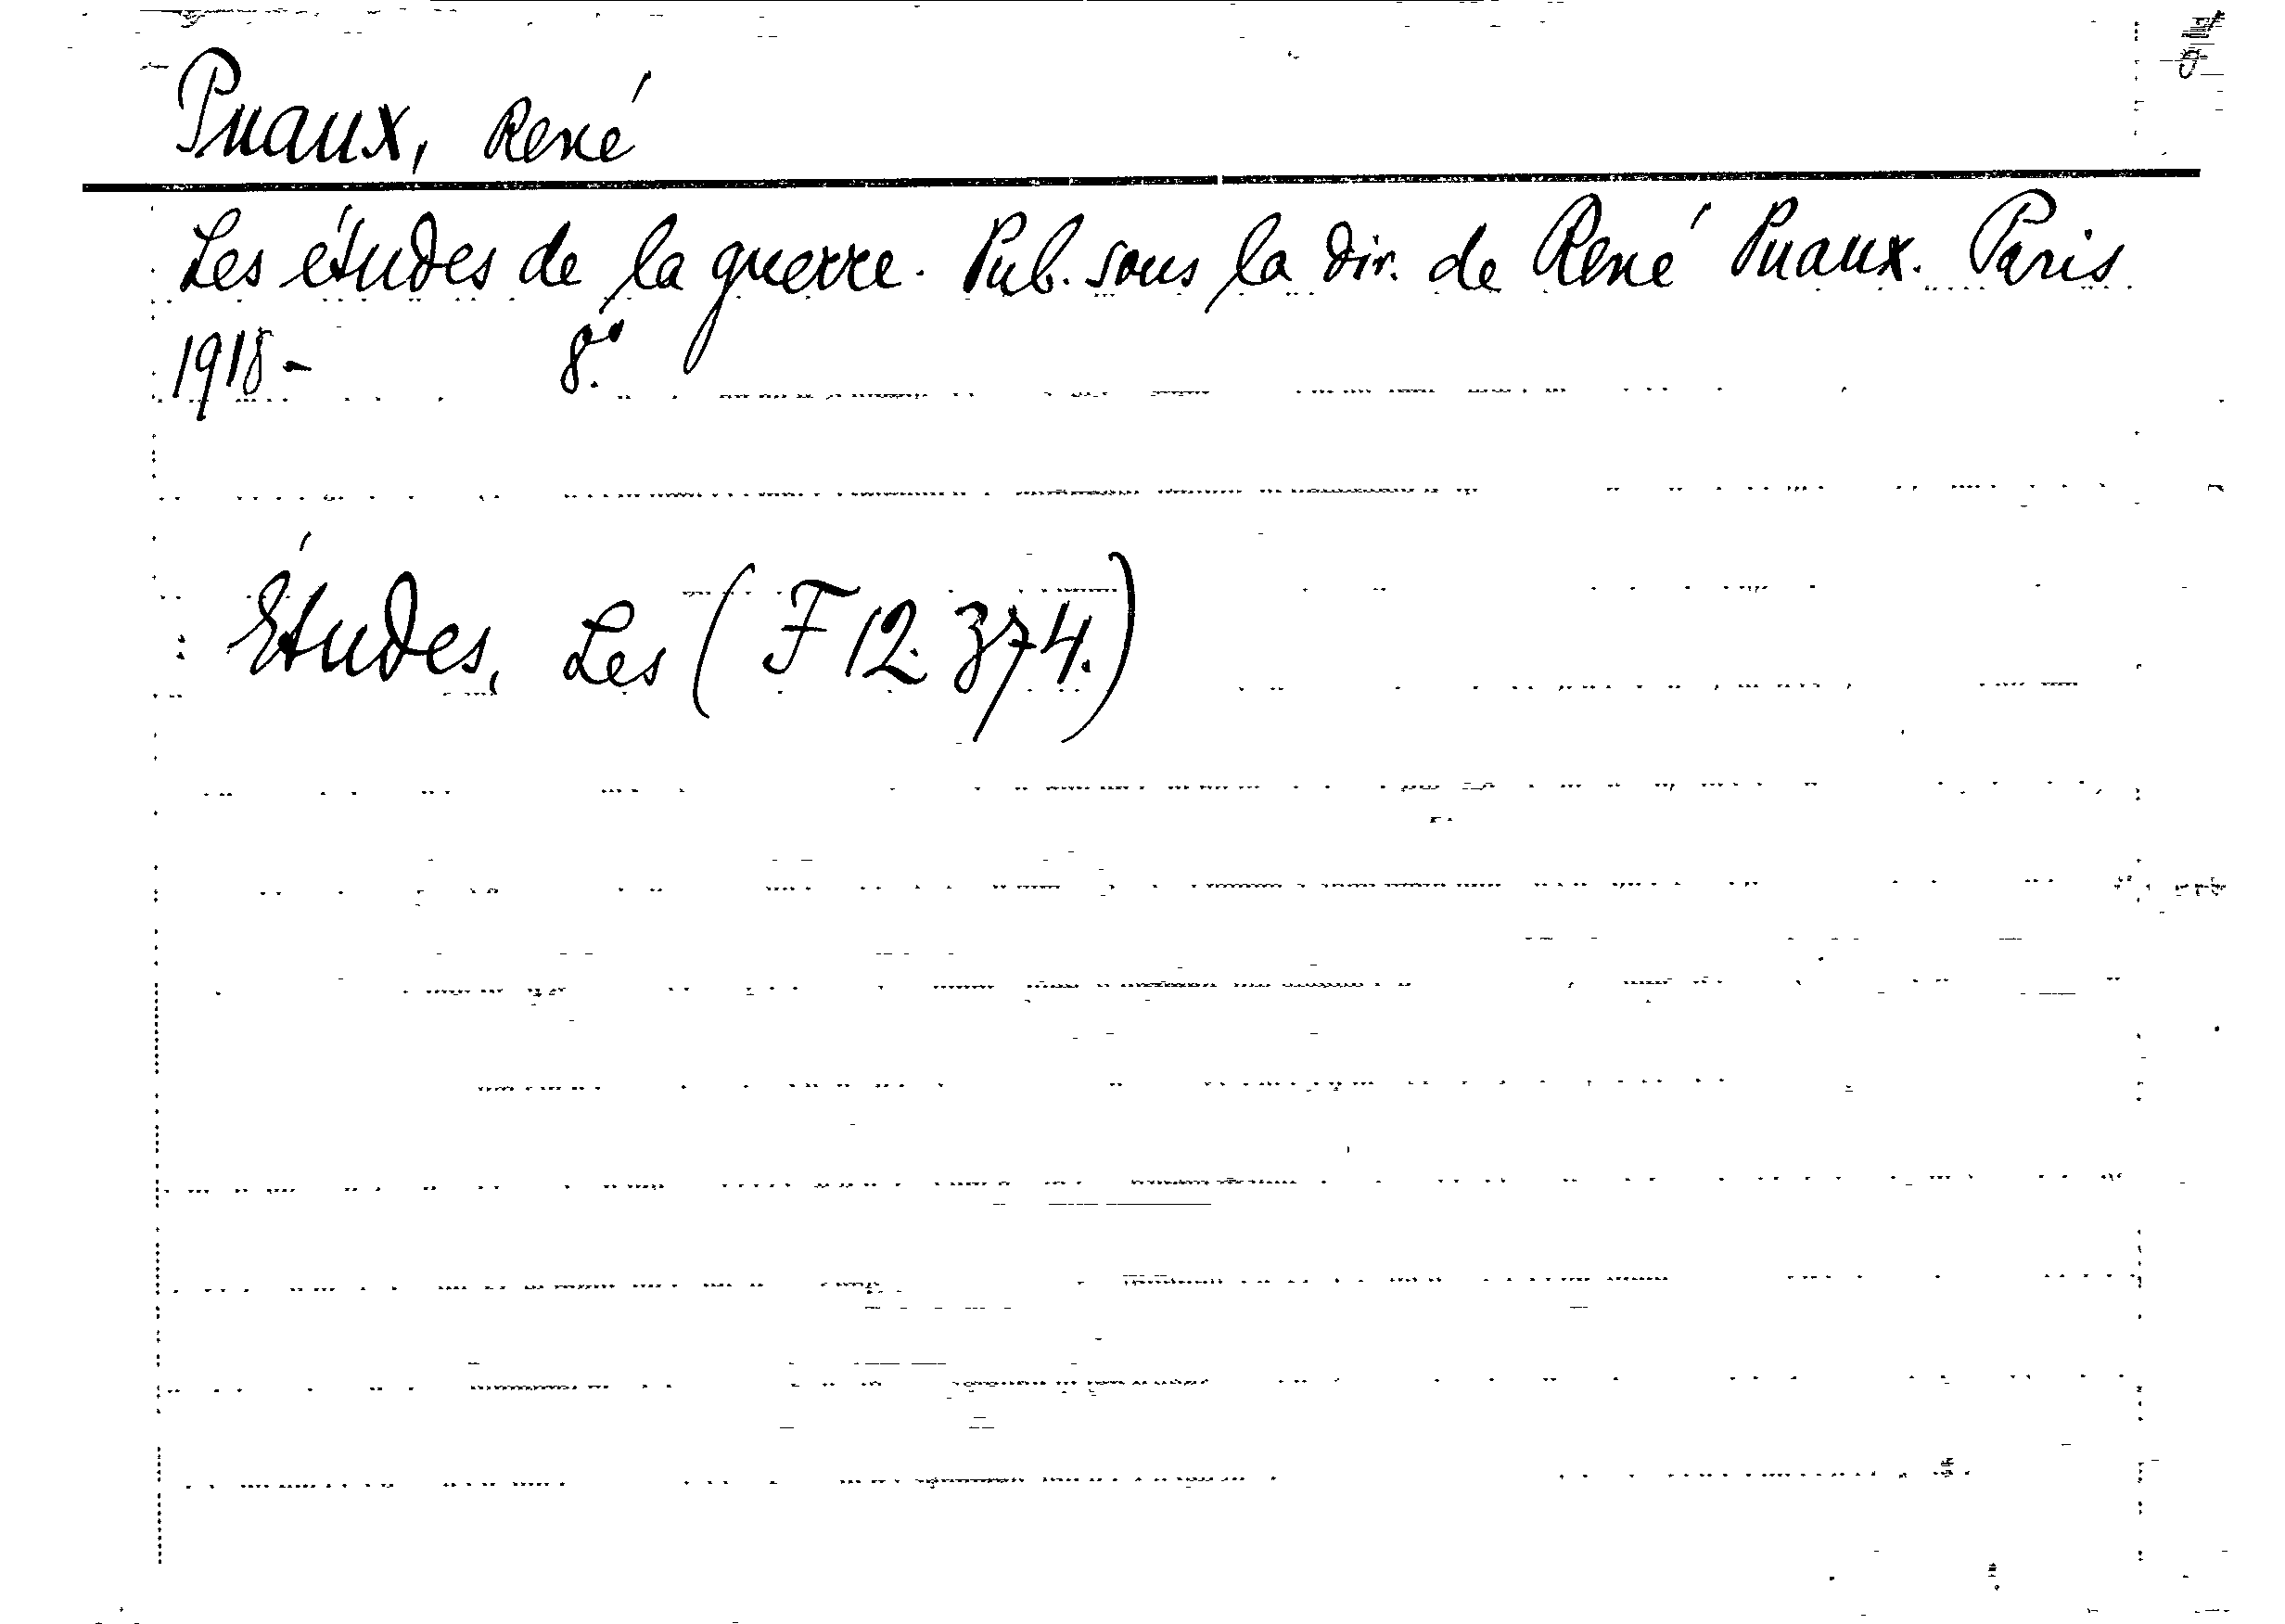 Puaux, René
Les études de la guerre. Pub. sous la dir. de René Puaux. Paris
1918- 8:o
Études, Les (F 12. 374.)